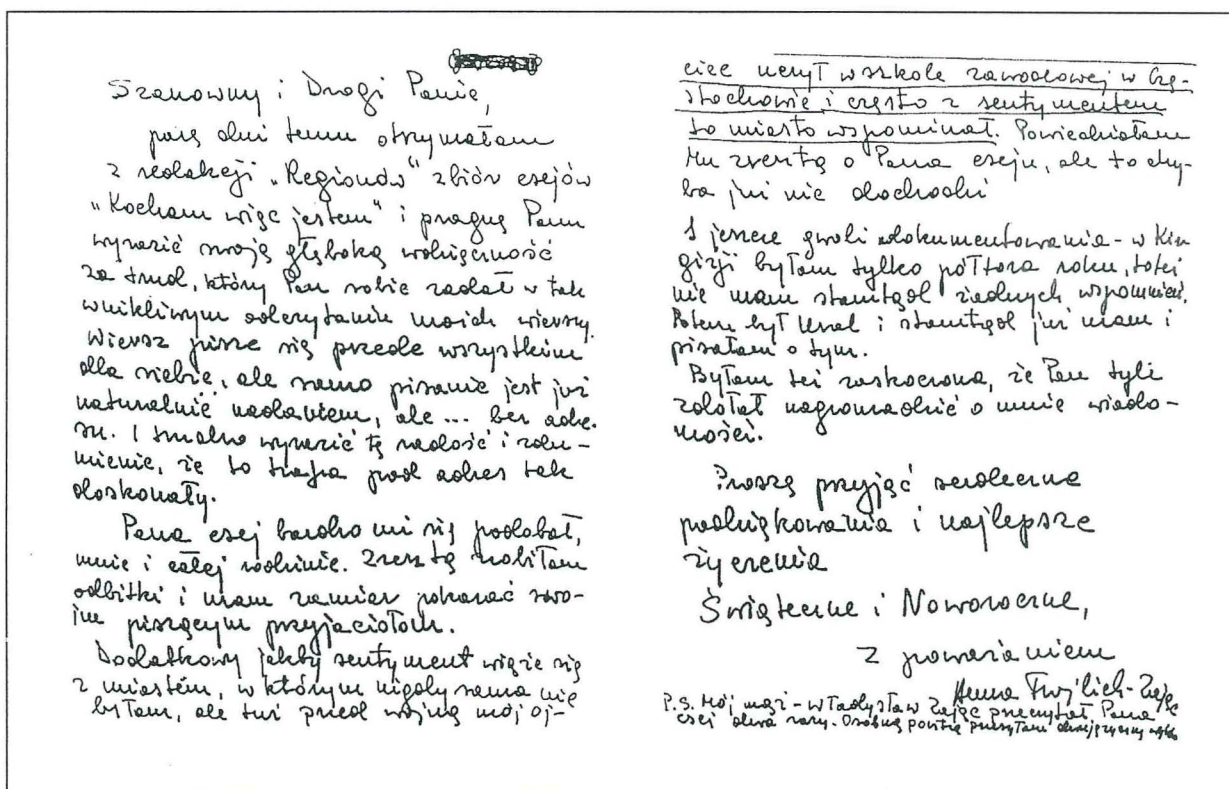 Szanowny i Drogi Panie,
parę dni temu otrzymałam
z redakcji „Regionów" zbiór esejów
„Kocham więc jestem" i pragnę Panu
wyrazić swoją głęboką wdzięczność
za trud, który Pan sobie zadał w tak
wnikliwym odczytaniu moich wierszy.
Wiersz pisze się przede wszystkim
dla siebie, ale samo pisanie jest już
naturalnie nadaniem, ale... bez adre-
su. I trudno wyrazić tę radość i zdu-
mienie, że to trafia pod adres tak
doskonały.
Pana esej bardzo mi się podobał,
mnie i całej rodzinie. Zresztą zrobiłam
odbitki i mam zamiar pokazać swo-
im piszącym przyjaciołom.
Dodatkowy jakby sentyment wiąże się
z miastem, w którym nigdy sama nie
byłam, ale tuż przed wojną mój oj-
ciec uczył w szkole zawodowej w Czę-
stochowie i często z sentymentem
to miasto wspominał. Powiedziałam
Mu zresztą o Pana eseju, ale to chy-
ba już nie dochodzi
I jeszcze gwoli udokumentowania - w Kir
gizji byłam tylko półtora roku, toteż
nie mam stamtąd żadnych wspomnień.
Potem był Ural i stamtąd już mam i
pisałam o tym.
Byłam też zaskoczona, że Pan tyle
zdołał nagromadzić o mnie wiado-
mości.
Proszę przyjąć serdeczne
podziękowania i najlepsze
życzenia
Świąteczne i Noworoczne,
z poważaniem
Hanna Frajlich-Zając
P.S. Mój mąż - Władysław Zając przeczytał Pana
esej dwa razy. Osobną pocztą przesyłam dwujęzyczny